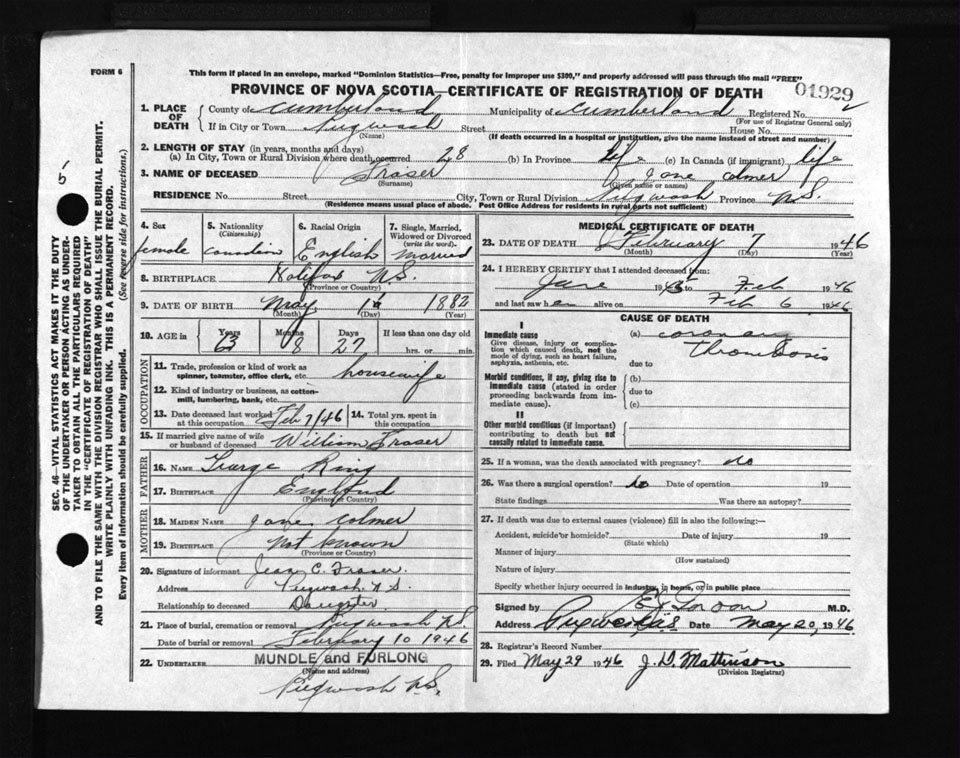 FORM 6
This form if placed in an envelope, marked "Dominion Statistics—Free, penalty for improper use $300," and properly addressed will pass through the mail "FREE"
PROVINCE OF NOVA SCOTIA—CERTIFICATE OF REGISTRATION OF DEATH
01929
1. PLACE OF DEATH County of Cumberland Municipality of Cumberland Registered No. 2
(For use of Registrar General only)
If in City or Town Pugwash Street House No.
(If death occurred in a hospital or institution, give the name instead of street and number)
2. LENGTH OF STAY (in years, months and days)
(a) In City, Town or Rural Division where death occurred 28 (b) In Province life (c) In Canada (if immigrant) life
3. NAME OF DECEASED Fraser Jane Colmer
(Surname) (Given name or names)
RESIDENCE No. Street City, Town or Rural Division Pugwash Province N.S.
(Residence means usual place of abode. Post Office Address for residents in rural parts not sufficient)
4. Sex female
5. Nationality (Citizenship) Canadian
6. Racial Origin English
7. Single, Married, Widowed or Divorced (write the word) married
8. BIRTHPLACE Halifax N.S.
(Province or Country)
9. DATE OF BIRTH May 1882
(Month) (Day) (Year)
10. AGE in Years 63 Months 8 Days 27 If less than one day old
hrs. or min.
OCCUPATION
11. Trade, profession or kind of work as spinner, teamster, office clerk, etc. housewife
12. Kind of industry or business, as cotton-mill, lumbering, bank, etc.
13. Date deceased last worked at this occupation Feb 7/46
14. Total yrs. spent in this occupation
15. If married give name of wife or husband of deceased William Fraser
FATHER
16. NAME George King
17. BIRTHPLACE England
(Province or Country)
MOTHER
18. MAIDEN NAME Jane Colmer
19. BIRTHPLACE Not known
(Province or Country)
20. Signature of informant Jean C. Fraser.
Address Pugwash N.S.
Relationship to deceased Daughter
21. Place of burial, cremation or removal Pugwash N.S.
Date of burial or removal February 10 1946
22. UNDERTAKER MUNDLE and FURLONG
(Name and address)
Pugwash N.S.
MEDICAL CERTIFICATE OF DEATH
23. DATE OF DEATH February 7 1946
(Month) (Day) (Year)
24. I HEREBY CERTIFY that I attended deceased from:
June 1945 Feb 1946
and last saw her alive on Feb 6 1946
CAUSE OF DEATH
I
Immediate cause
Give disease, injury or complication which caused death, not the mode of dying, such as heart failure, asphyxia, asthenia, etc.
(a) coronary thrombosis
due to
Morbid conditions, if any, giving rise to immediate cause (stated in order proceeding backwards from immediate cause).
(b)
due to
(c)
II
Other morbid conditions (if important) contributing to death but not causally related to immediate cause.
25. If a woman, was the death associated with pregnancy? no
26. Was there a surgical operation? no Date of operation 19
State findings Was there an autopsy?
27. If death was due to external causes (violence) fill in also the following:—
Accident, suicide or homicide? Date of injury 19
(State which)
Manner of injury
(How sustained)
Nature of injury
Specify whether injury occurred in industry, in home, or in public place
Signed by M.D.
Address Pugwash N.S. Date May 20, 1946
28. Registrar's Record Number
29. Filed May 29 1946 J. D. Mattinson
(Division Registrar)
SEC. 46—VITAL STATISTICS ACT MAKES IT THE DUTY
OF THE UNDERTAKER OR PERSON ACTING AS UNDER-
TAKER TO OBTAIN ALL THE PARTICULARS REQUIRED
IN THE "CERTIFICATE OF REGISTRATION OF DEATH"
AND TO FILE THE SAME WITH THE DIVISION REGISTRAR WHO SHALL ISSUE THE BURIAL PERMIT.
WRITE PLAINLY WITH UNFADING INK. THIS IS A PERMANENT RECORD.
Every item of information should be carefully supplied. (See reverse side for instructions.)